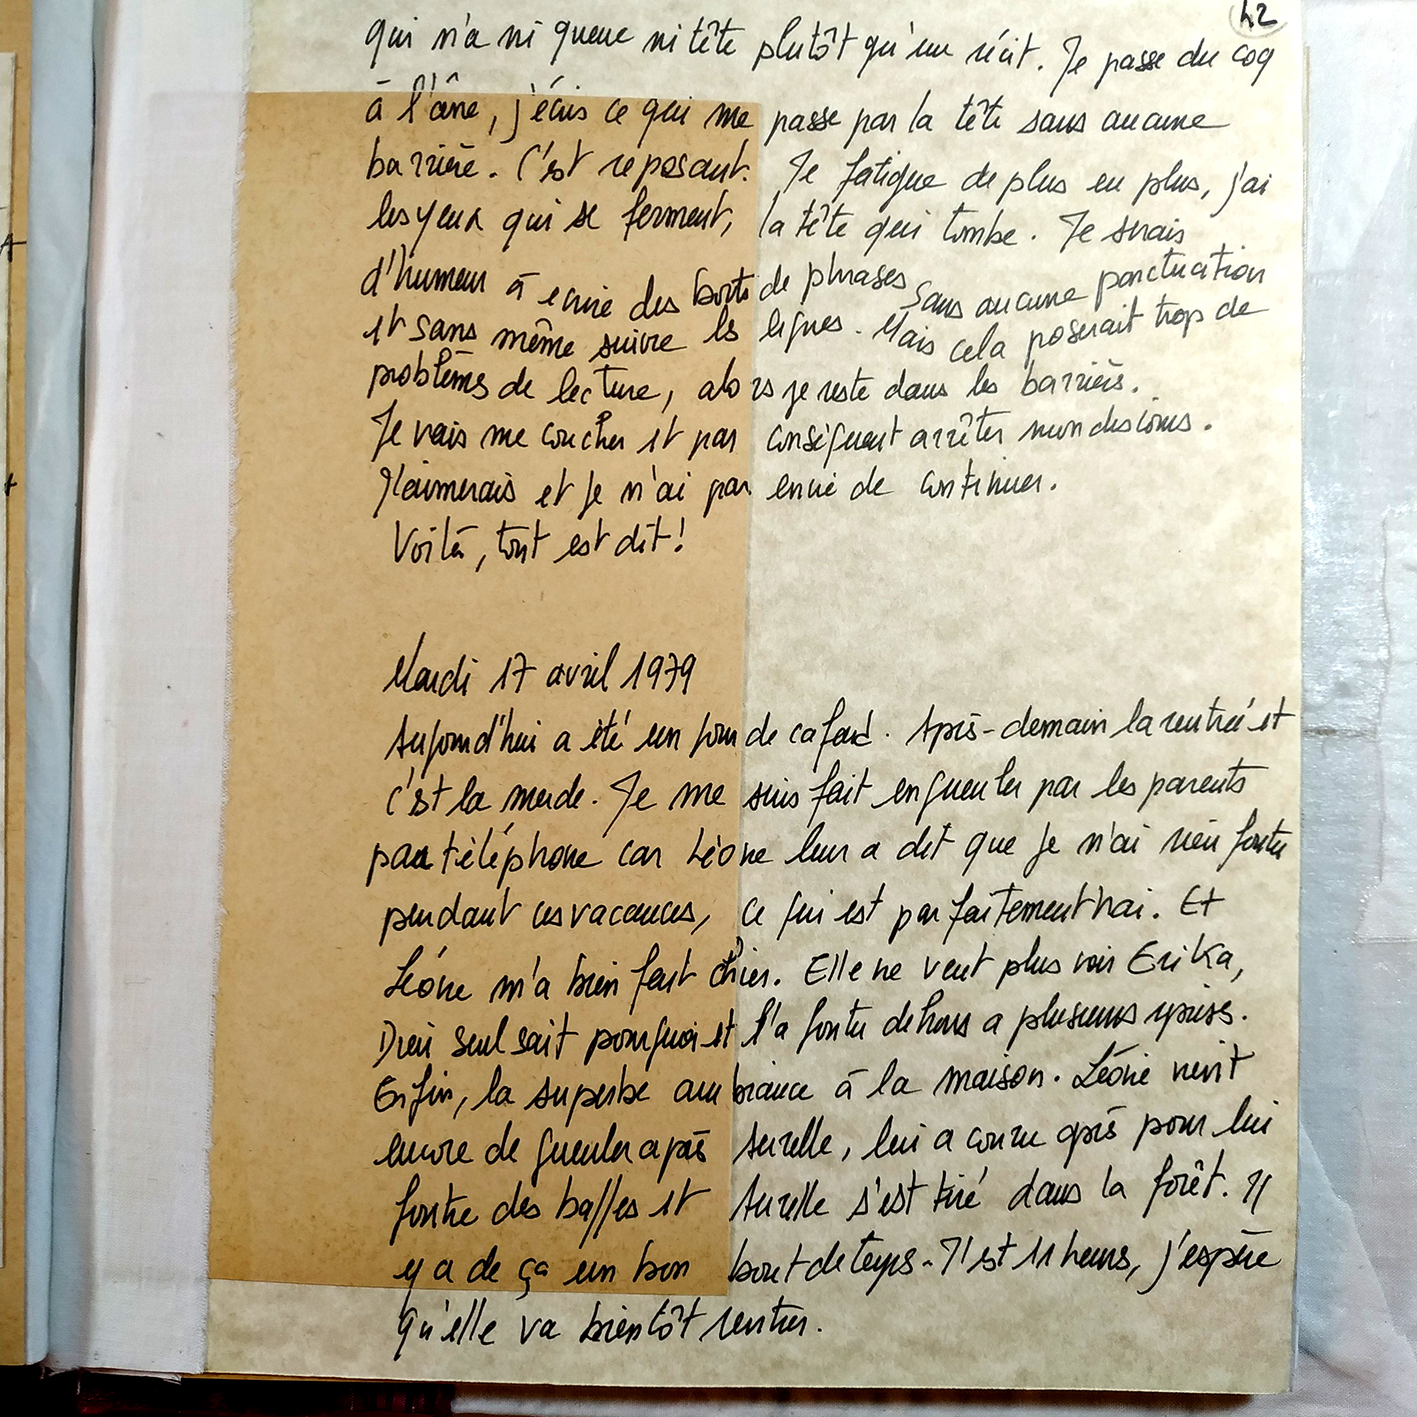 42
qui n'a ni queue ni tête plutôt qu'un récit. Je passe du coq
à l'âne, j'écris ce qui me passe par la tête sans aucune
barrière. C'est reposant. Je fatigue de plus en plus, j'ai
les yeux qui se ferment, la tête qui tombe. Je serais
d'humeur à écrire des bouts de phrases sans aucune ponctuation
et sans même suivre les lignes. Mais cela poserait trop de
problèmes de lecture, alors je reste dans les barrières.
Je vais me coucher et par conséquent arrêter mon discours.
J'aimerais et je n'ai pas envie de continuer.
Voilà, tout est dit!
Mardi 17 avril 1979
Aujourd'hui a été un jour de cafard. Après-demain la rentrée et
c'est la merde. Je me suis fait engueuler par les parents
par téléphone car Léone leur a dit que je n'ai rien foutu
pendant ces vacances, ce qui est parfaitement vrai. Et
Léone m'a bien fait chier. Elle ne veut plus voir Erika,
Dieu seul sait pourquoi et l'a foutu dehors a plusieurs reprises.
Enfin, la superbe ambiance à la maison. Léone vient
encore de gueuler après Aurelle, lui a couru après pour lui
foutre des baffes et Aurelle s'est tiré dans la forêt. Il
y a de ça un bon bout de temps. Il est 11 heures, j'espère
qu'elle va bientôt rentrer.